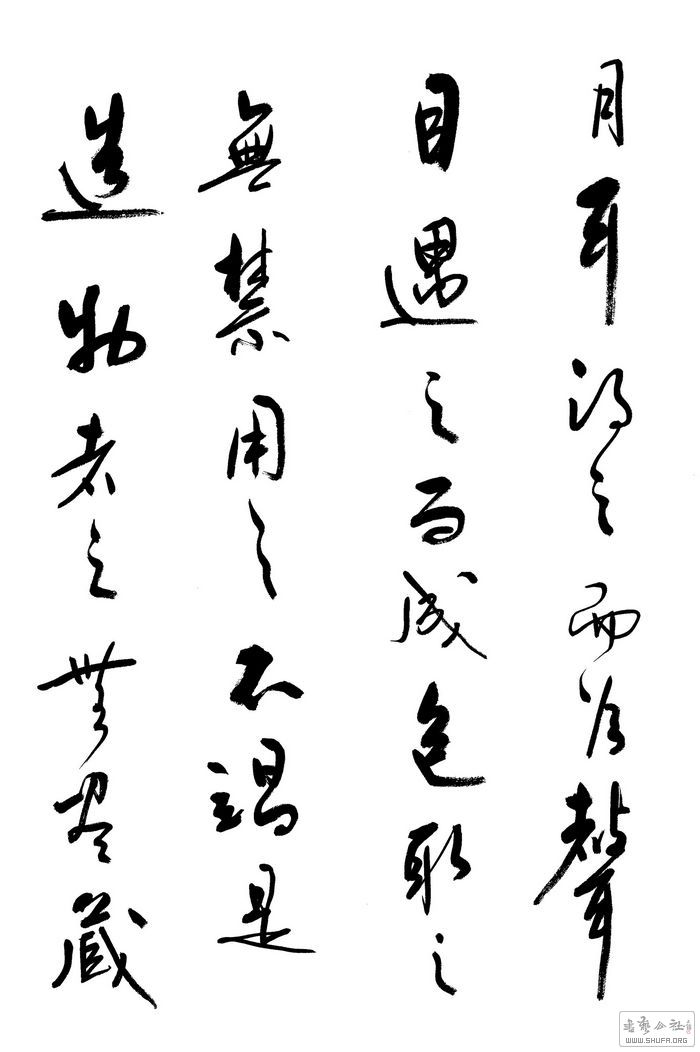 月耳得之而為聲
目遇之而成色取之
無禁用之不竭是
造物者之無盡藏
書藝公社
WWW.SHUFA.ORG